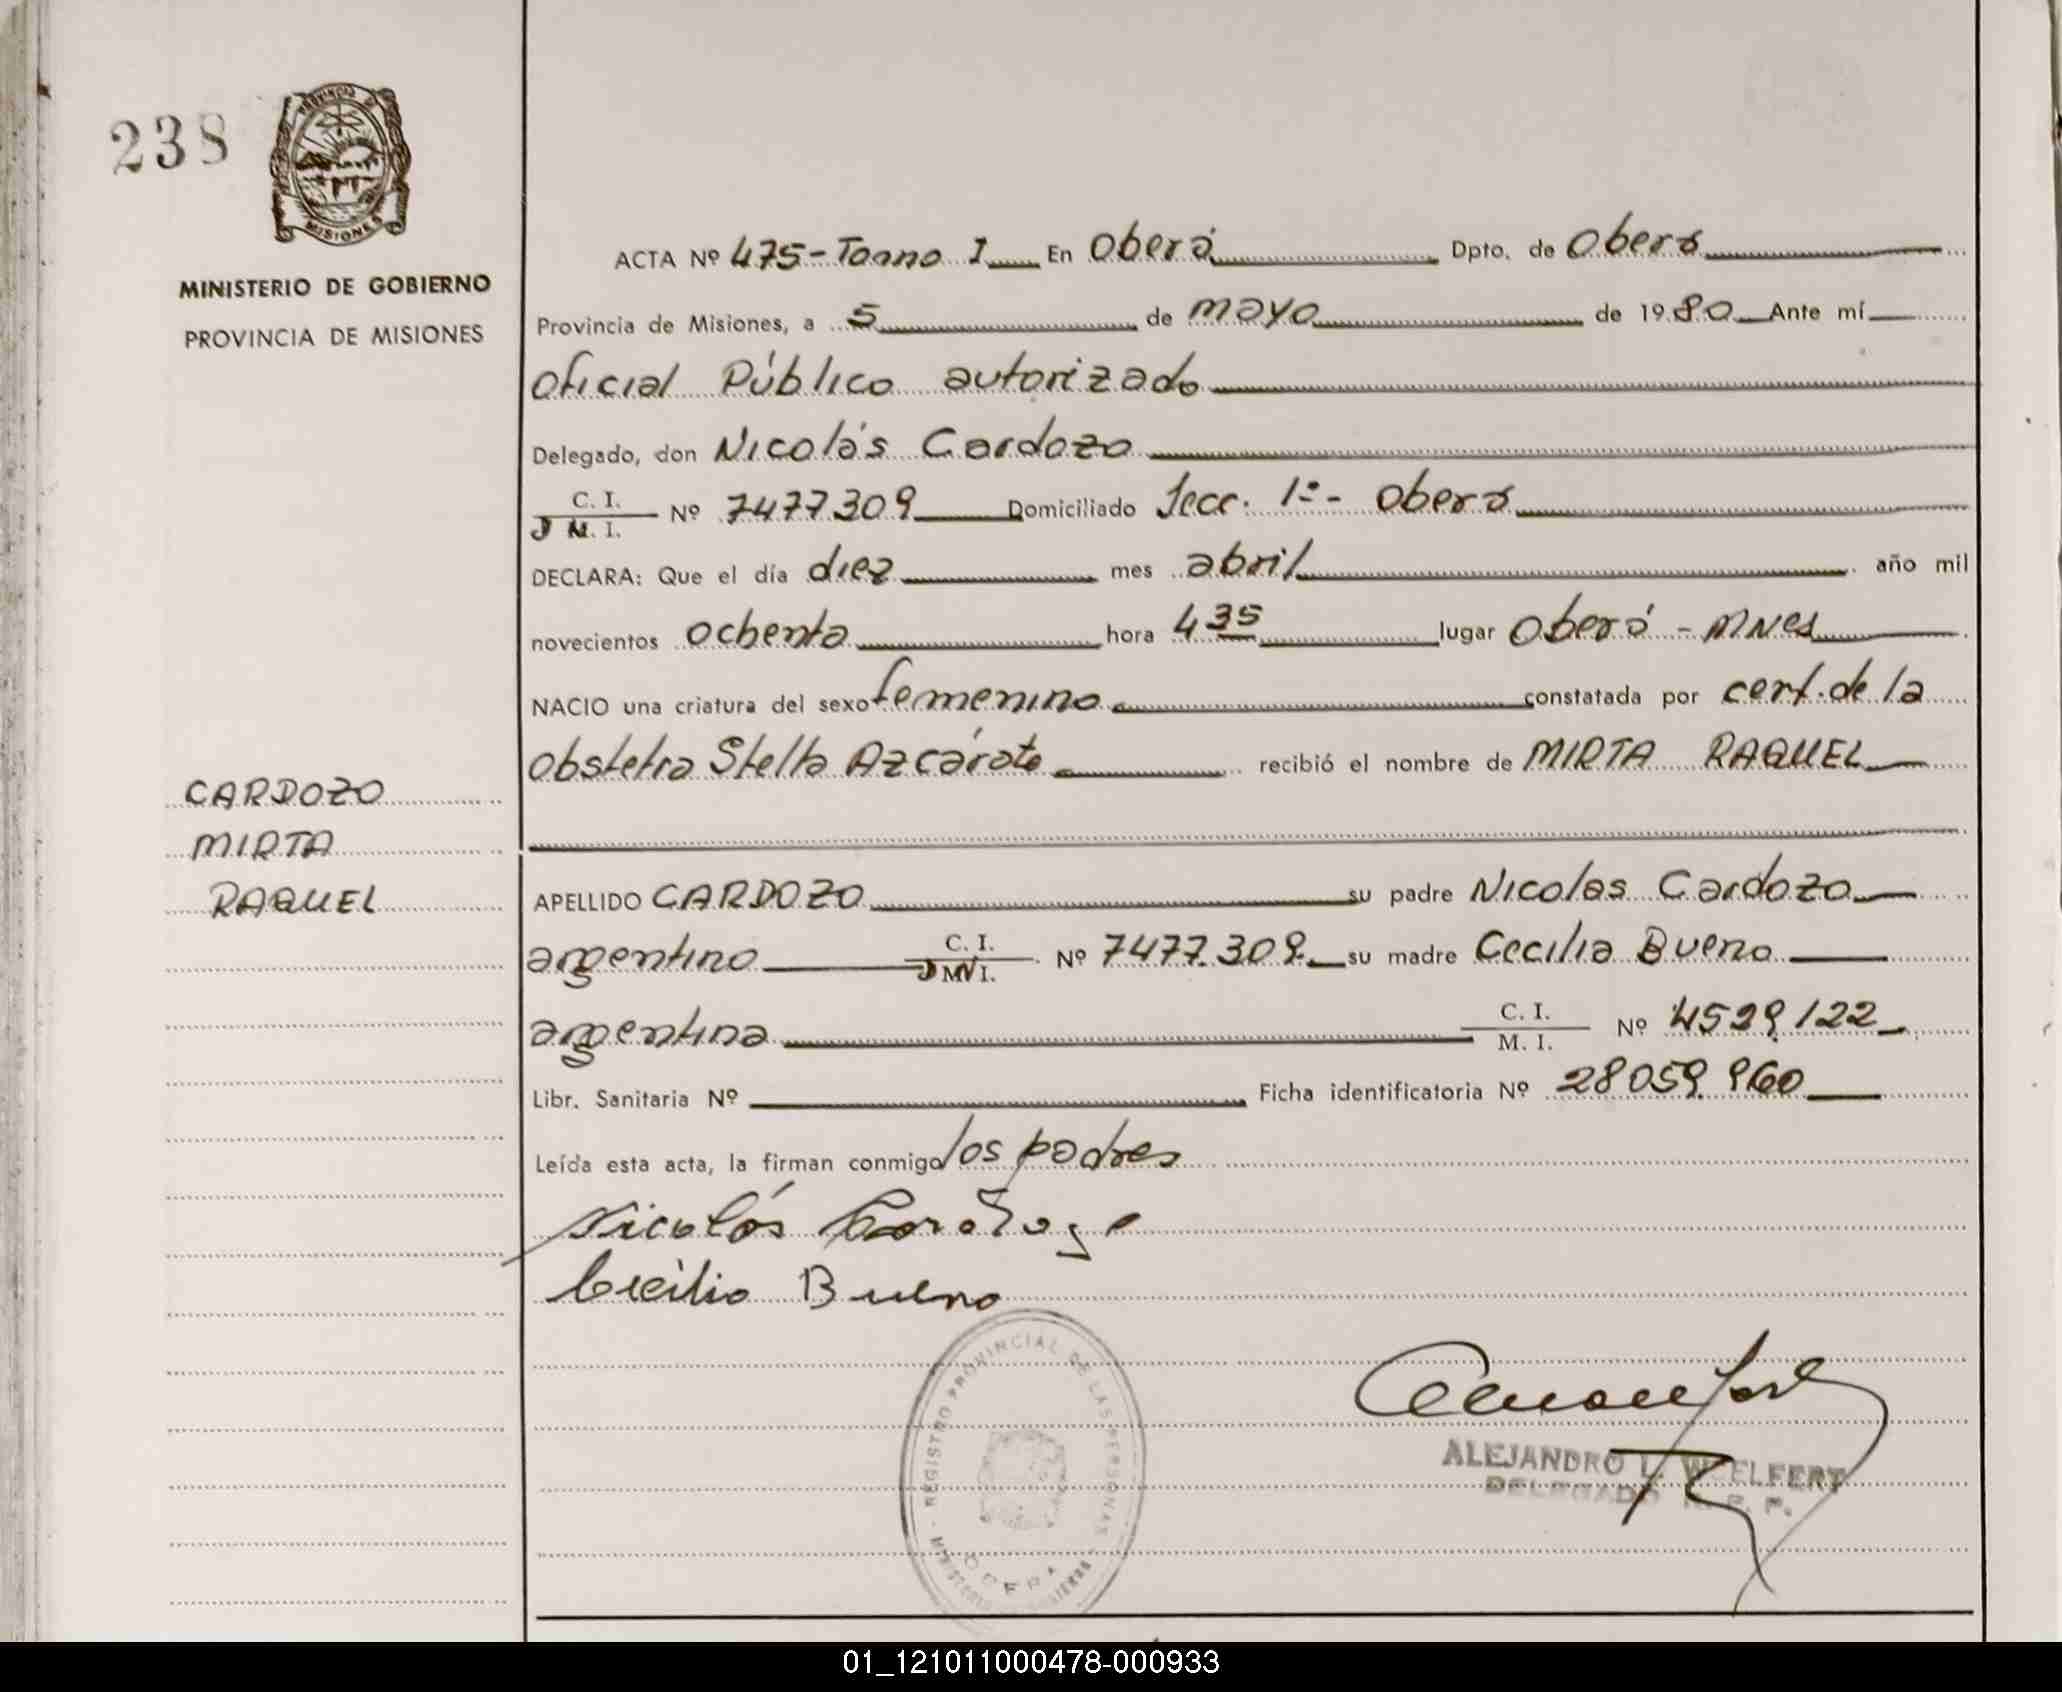 238
PROVINCIA DE
MISIONES
MINISTERIO DE GOBIERNO
PROVINCIA DE MISIONES
ACTA Nº 475-Tomo I En Oberá Dpto. de Oberá
Provincia de Misiones, a 5 de mayo de 1980 Ante mí
Oficial Público autorizado
Delegado, don Nicolás Cardozo
C. I.
D M. I. Nº 7477309 Domiciliado Secc. 1ª- Oberá
DECLARA: Que el día diez mes abril año mil
novecientos ochenta hora 4 35 lugar Oberá - Mnes
NACIO una criatura del sexo femenino constatada por cert. de la
Obstetra Stella Azcárate recibió el nombre de MIRTA RAQUEL
CARDOZO
MIRTA
RAQUEL
APELLIDO CARDOZO su padre Nicolas Cardozo
argentino C. I.
D M I. Nº 7477.309 su madre Cecilia Bueno
argentina C. I.
M. I. Nº 4529122
Libr. Sanitaria Nº Ficha identificatoria Nº 28059960
Leída esta acta, la firman conmigo los padres
Nicolás Cardozo
Cecilia Bueno
REGISTRO PROVINCIAL DE LAS PERSONAS
OBERA
ALEJANDRO L. WOELFERT
DELEGADO R. P. P.
01_121011000478-000933